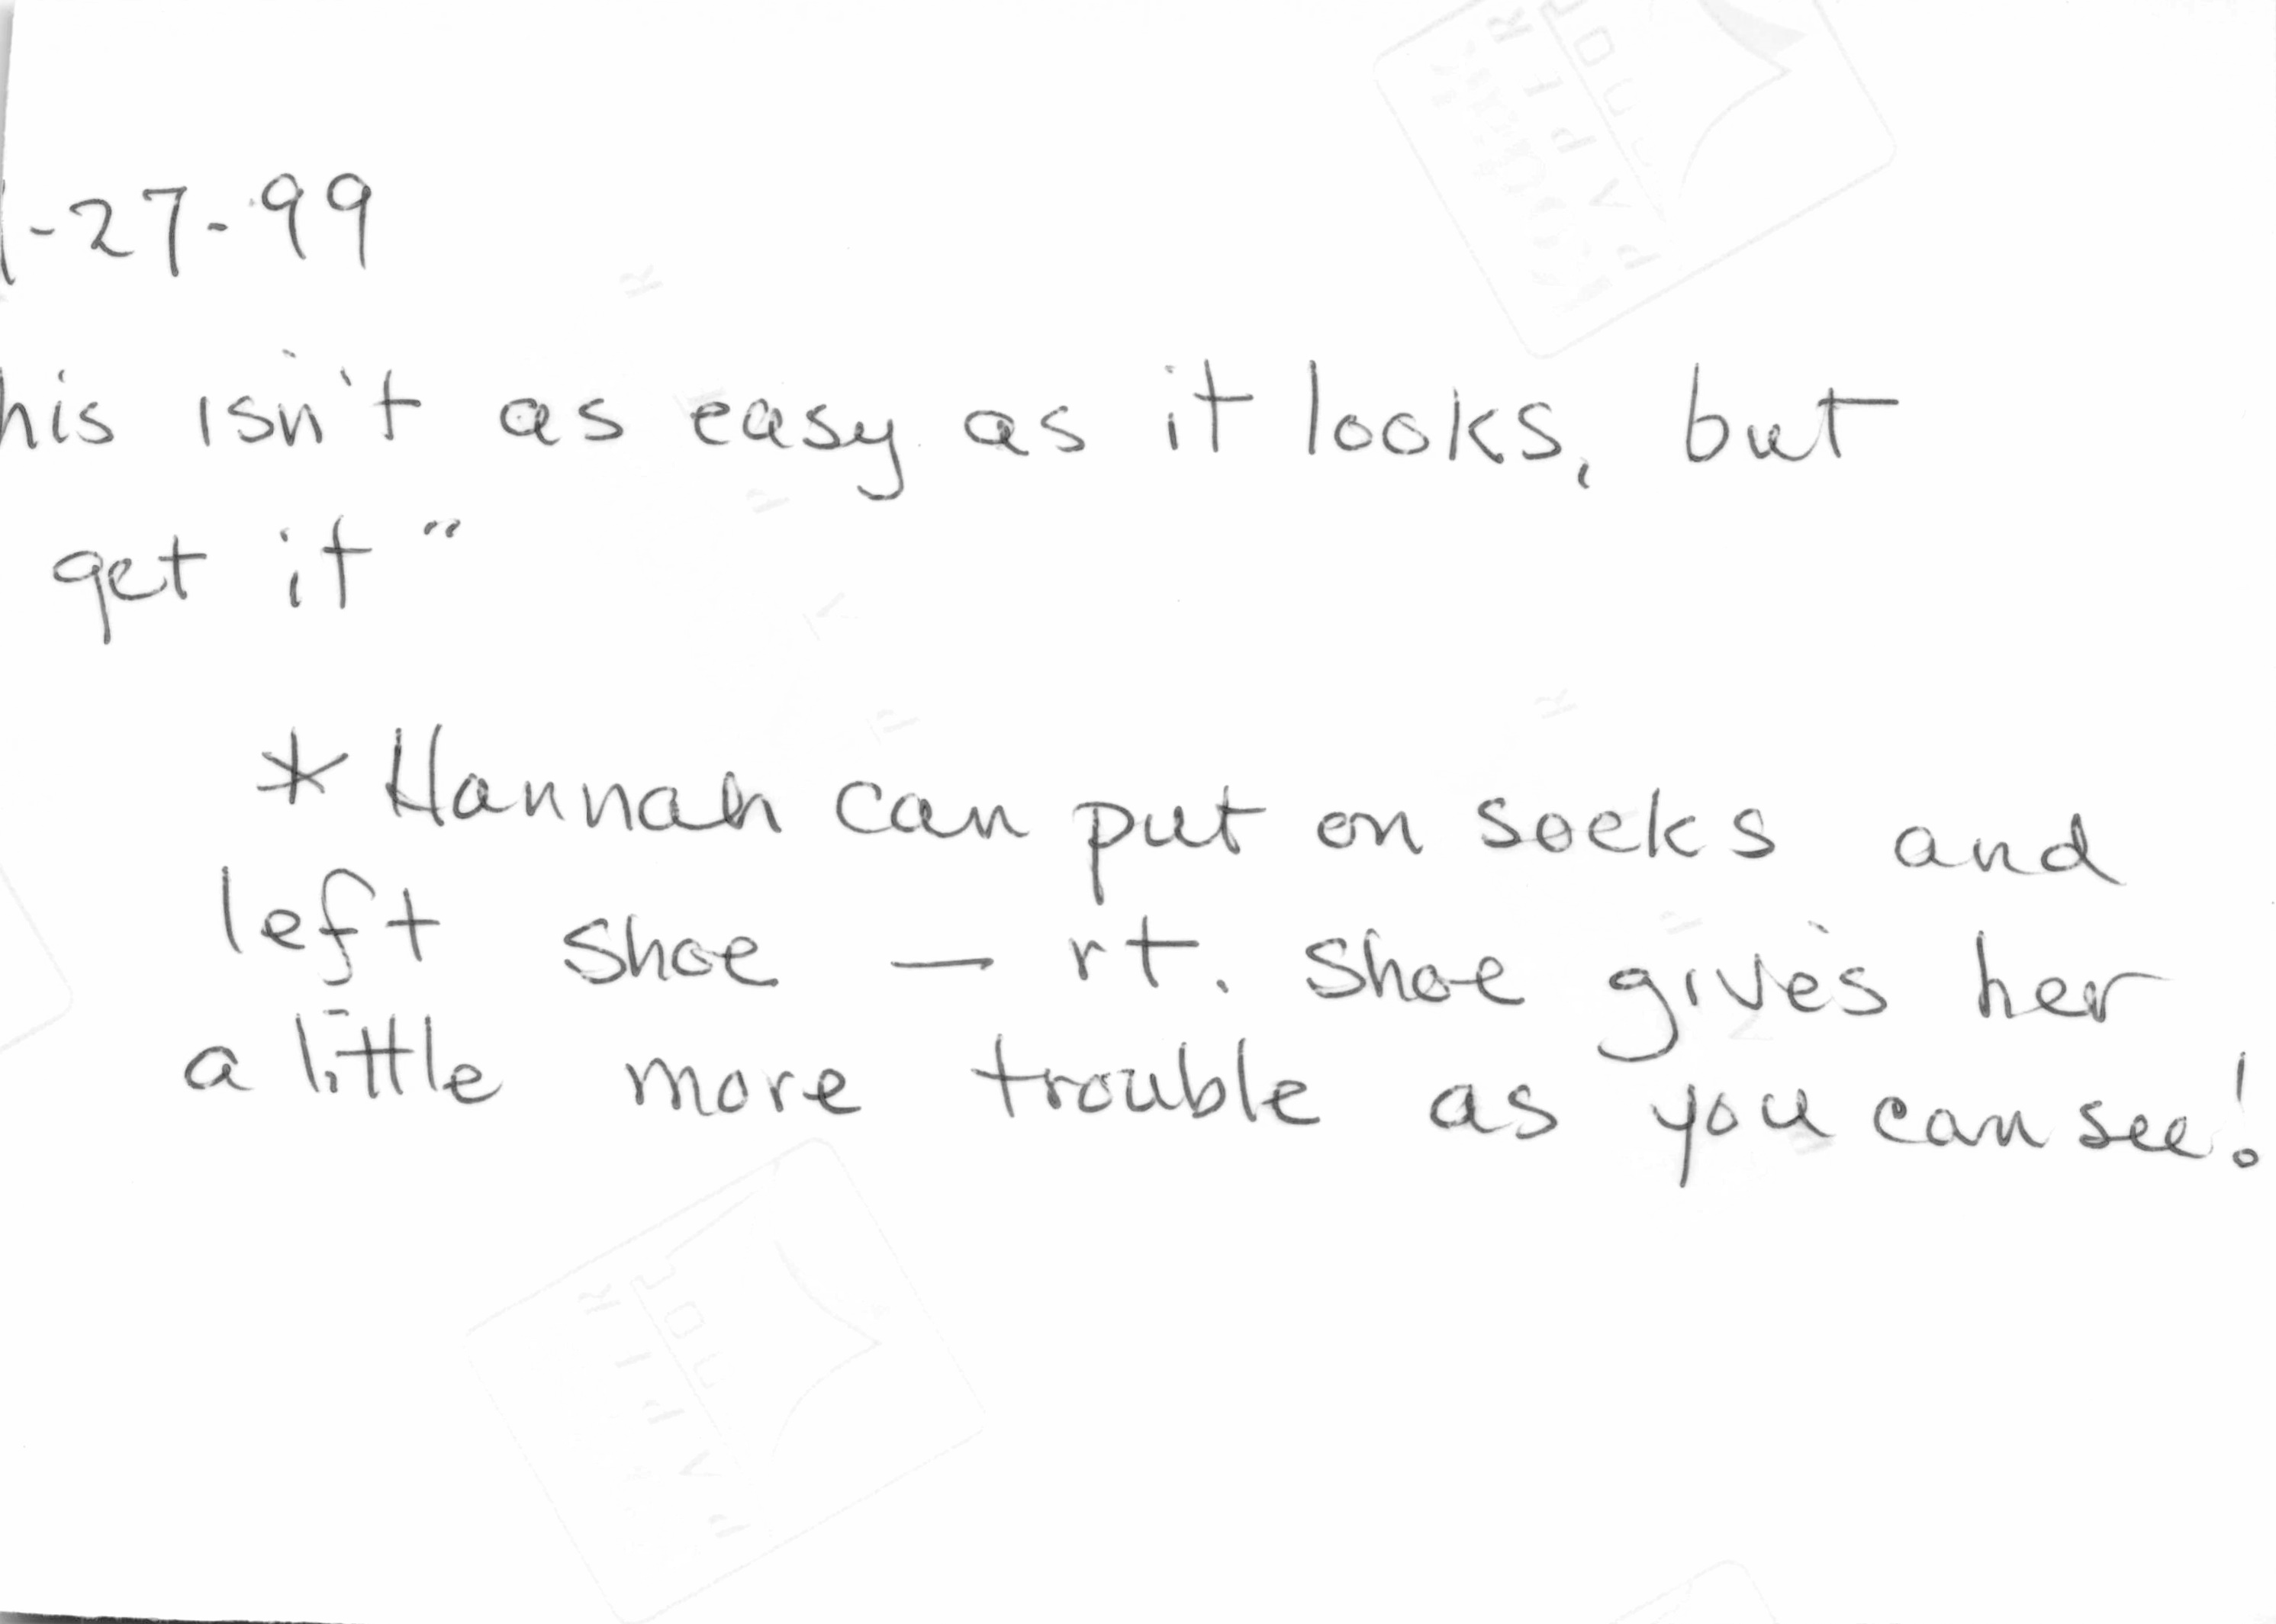 1-27-99
his isn't as easy as it looks, but
get it"
* Hannah can put on socks and
left shoe — rt. shoe gives her
a little more trouble as you can see!
PAPIER
PAPIER